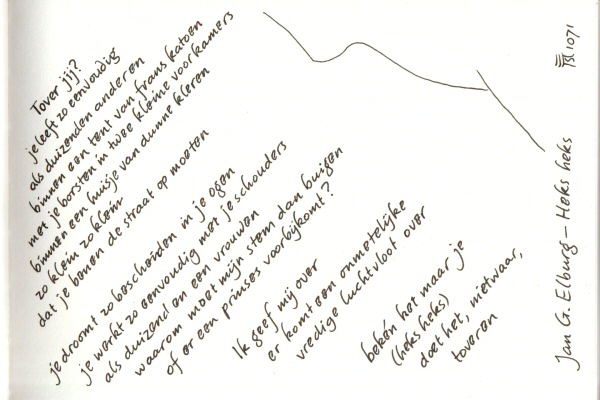 Tover jij?
je leeft zo eenvoudig
als duizenden anderen
binnen een tent van frans katoen
met je borsten in twee kleine voorkamers
binnen een huisje van dunne kleren
zo klein zo klein
dat je benen de straat op moeten
je droomt zo bescheiden in je ogen
je werkt zo eenvoudig met je schouders
als duizend en een vrouwen
waarom moet mijn stem dan buigen
of er een prinses voorbijkomt?
Ik geef mij over
er komt een onmetelijke
vredige luchtvloot over
bekén het maar je
(heks heks)
doet het, nietwaar,
toveren
Jan G. Elburg – Heks heks
1071